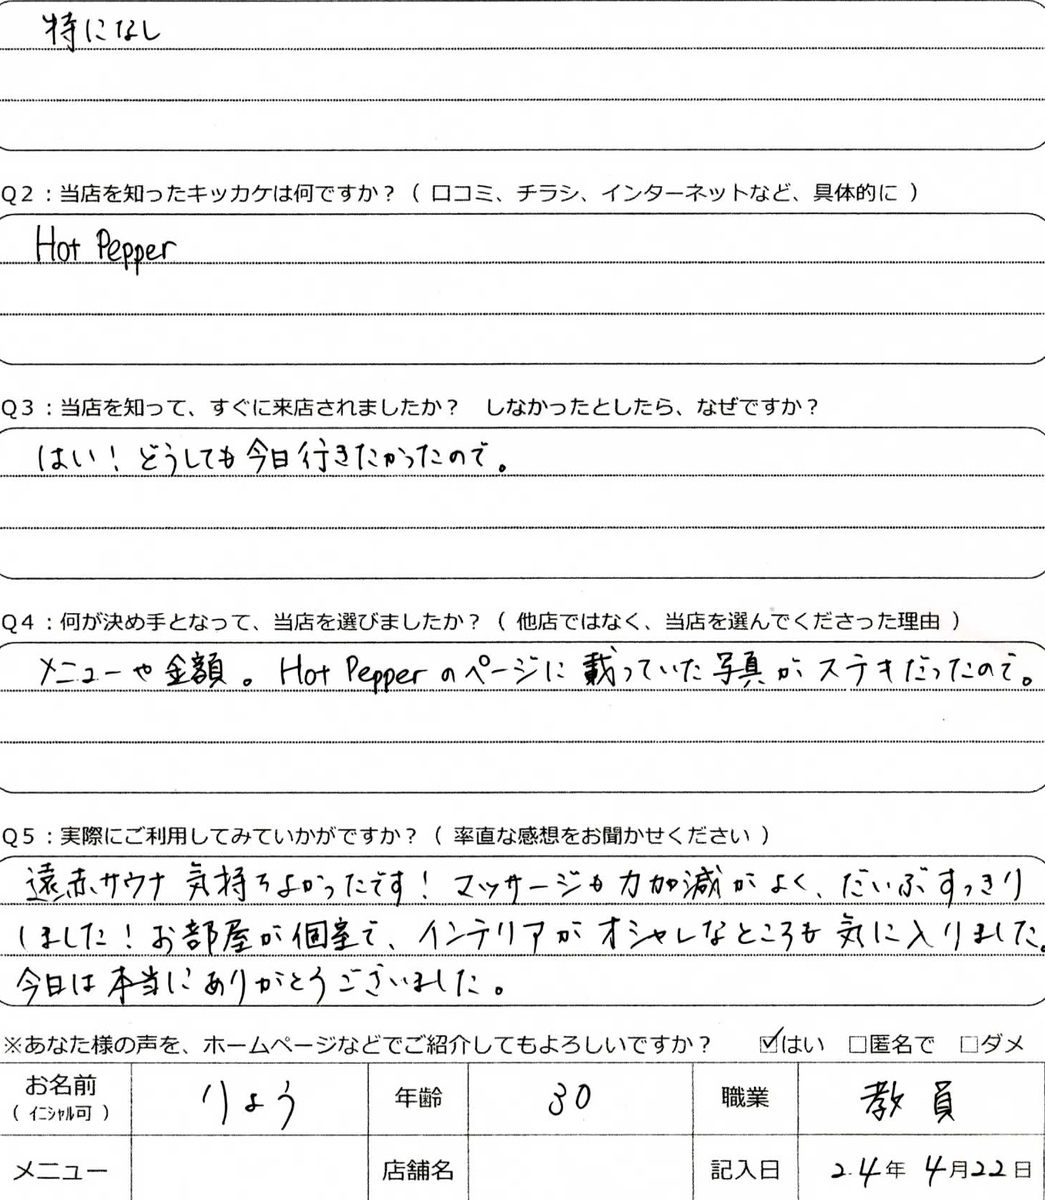 特になし
Q2：当店を知ったキッカケは何ですか？（ 口コミ、チラシ、インターネットなど、具体的に ）
Hot Pepper
Q3：当店を知って、すぐに来店されましたか？　しなかったとしたら、なぜですか？
はい！どうしても今日行きたかったので。
Q4：何が決め手となって、当店を選びましたか？（ 他店ではなく、当店を選んでくださった理由 ）
メニューや金額。Hot Pepperのページに載っていた写真がステキだったので。
Q5：実際にご利用してみていかがですか？（ 率直な感想をお聞かせください ）
遠赤サウナ気持ちよかったです！マッサージも力加減がよく、だいぶすっきり
しました！お部屋が個室で、インテリアがオシャレなところも気に入りました。
今日は本当にありがとうございました。
※あなた様の声を、ホームページなどでご紹介してもよろしいですか？　☑はい　□匿名で　□ダメ
お名前（ ｲﾆｼｬﾙ可 ） りょう 年齢 30 職業 教員
メニュー 店舗名 記入日 24年 4月22日